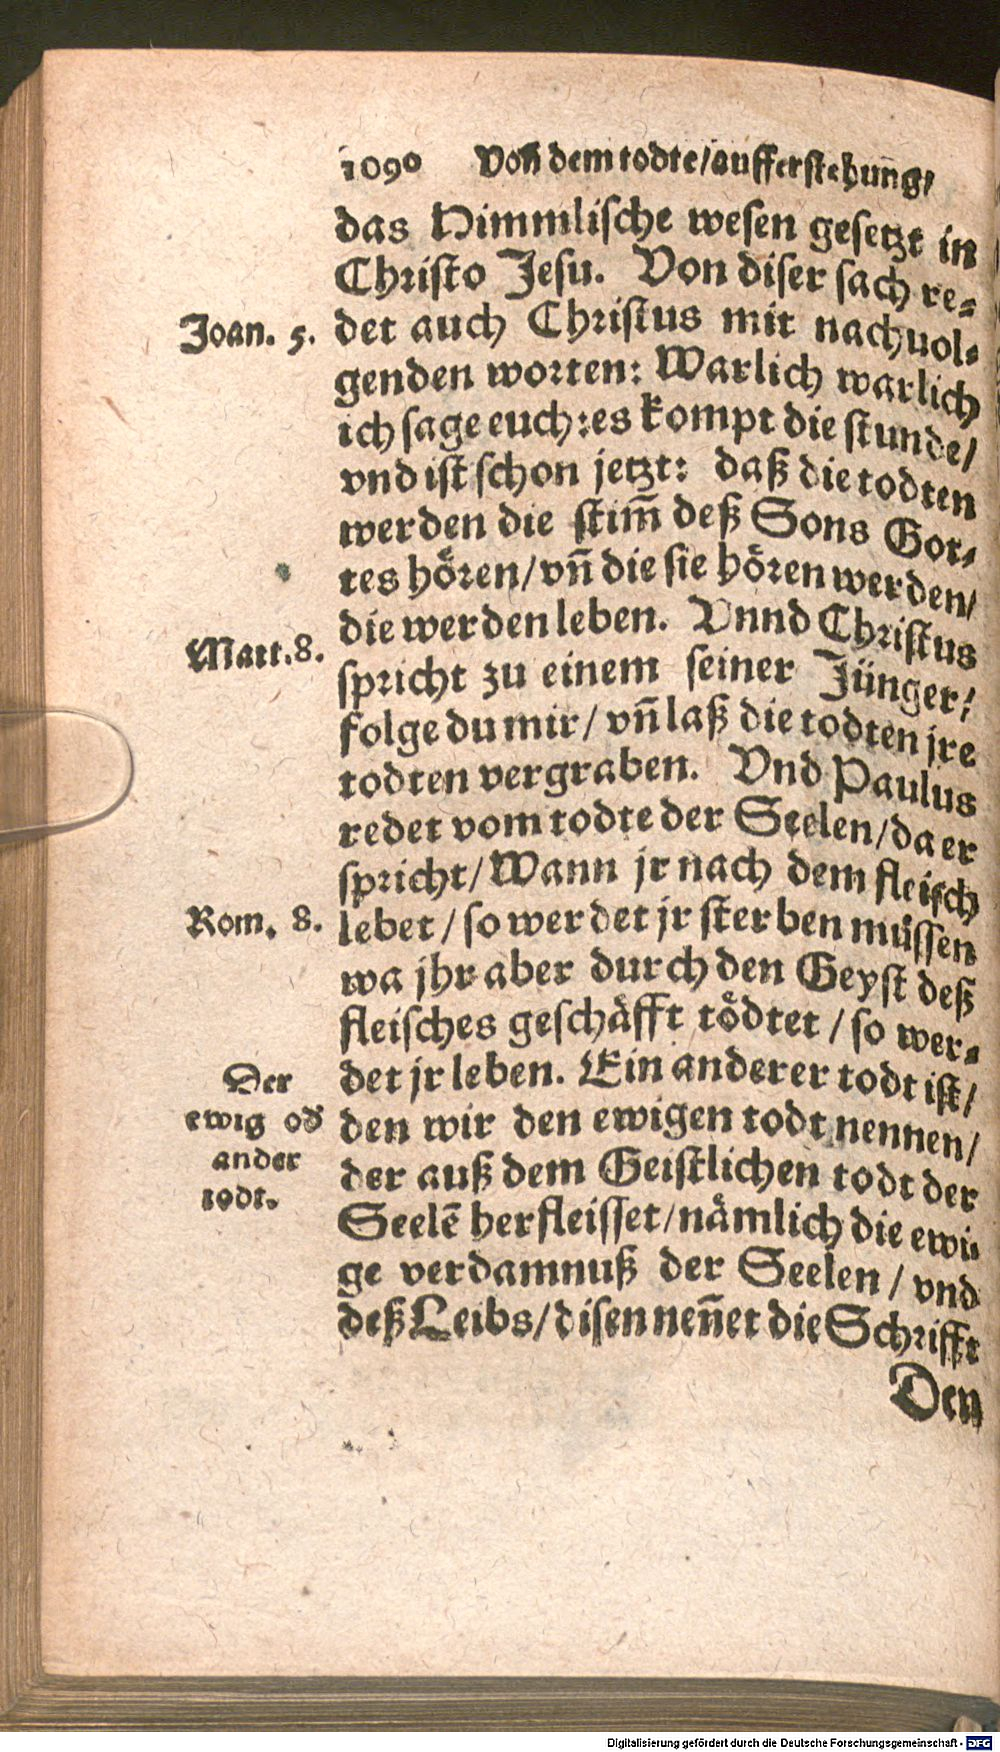 1090 Von dem todte/aufferstehung/
das Himmlische wesen gesetzt in
Christo Jesu. Von diser sach re-
Joan. 5.
det auch Christus mit nachuol-
genden worten: Warlich warlich
ich sage euch: es kompt die stunde/
vnd ist schon jetzt: daß die todten
werden die stim̃ deß Sons Got-
tes hören/vñ die sie hören werden/
die werden leben. Vnnd Christus
Matt. 8.
spricht zu einem seiner Jünger/
folge du mir/ vñ laß die todten jre
todten vergraben. Vnd Paulus
redet vom todte der Seelen/da er
spricht/ Wann jr nach dem fleisch
Rom. 8.
lebet/ so werdet jr sterben müssen
wa jhr aber durch den Geyst deß
fleisches geschäfft tödtet/ so wer-
Der
ewig oď
ander
todt.
det jr leben. Ein anderer todt ist/
den wir den ewigen todt nennen/
der auß dem Geistlichen todt der
Seelē herfleisset/nämlich die ewi-
ge verdamnuß der Seelen/ vnd
deß Leibs/disen neñet die Schrifft
Den
Digitalisierung gefördert durch die Deutsche Forschungsgemeinschaft - DFG